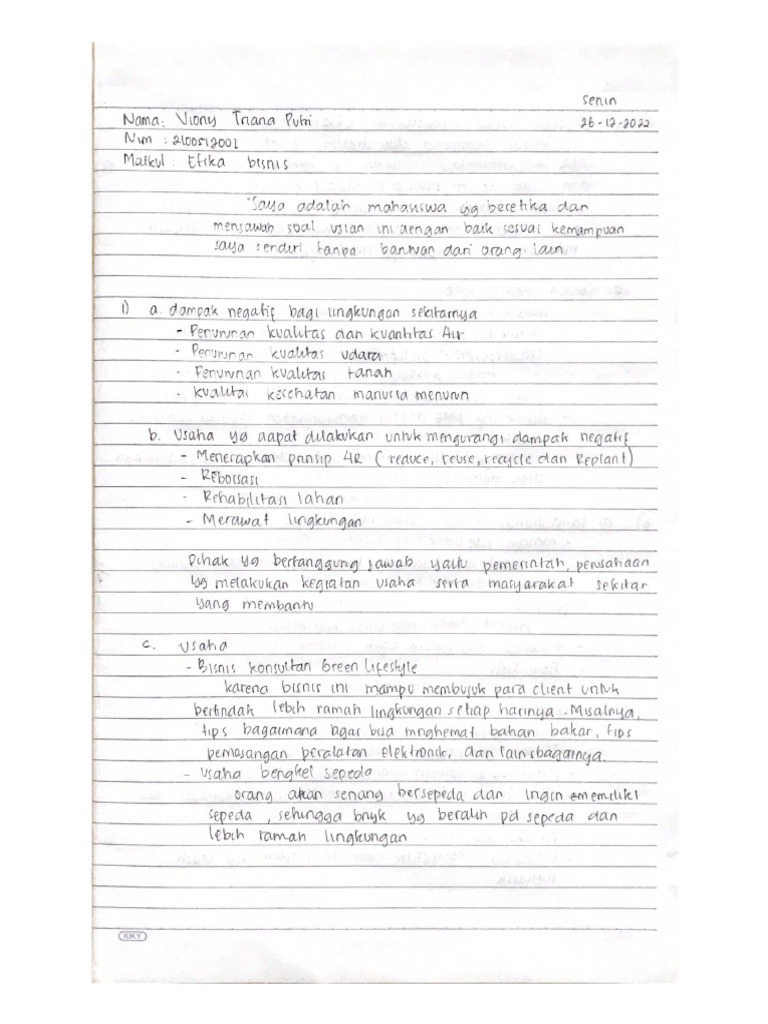 Senin
Nama : Viony Triana Putri 26-12-2022
Nim : 2100512001
Matkul : Etika bisnis
"Saya adalah mahasiswa yg beretika dan
menjawab soal ujian ini dengan baik sesuai kemampuan
saya sendiri tanpa bantuan dari orang lain.
1) a. dampak negatif bagi lingkungan sekitarnya
- Penurunan kualitas dan kuantitas Air
- Penurunan kualitas udara
- Penurunan kualitas tanah
- kualitas kesehatan manusia menurun
b. Usaha yg dapat dilakukan untuk mengurangi dampak negatif
- Menerapkan prinsip 4R ( reduce, reuse, recycle dan Replant)
- Reboisasi
- Rehabilitasi lahan
- Merawat lingkungan
Pihak yg bertanggung jawab yaitu pemerintah, perusahaan
yg melakukan kegiatan usaha serta masyarakat sekitar
yang membantu
c. usaha
- Bisnis konsultan Green lifestyle
karena bisnis ini mampu membujuk para client untuk
bertindak lebih ramah lingkungan setiap harinya. Misalnya,
tips bagaimana agar bisa mnghemat bahan bakar, tips
pemasangan peralatan elektronik, dan lain sbagainya.
- Usaha bengkel sepeda
orang akan senang bersepeda dan ingin memiliki
sepeda, sehingga bnyk yg beralih pd sepeda dan
lebih ramah lingkungan
KKY